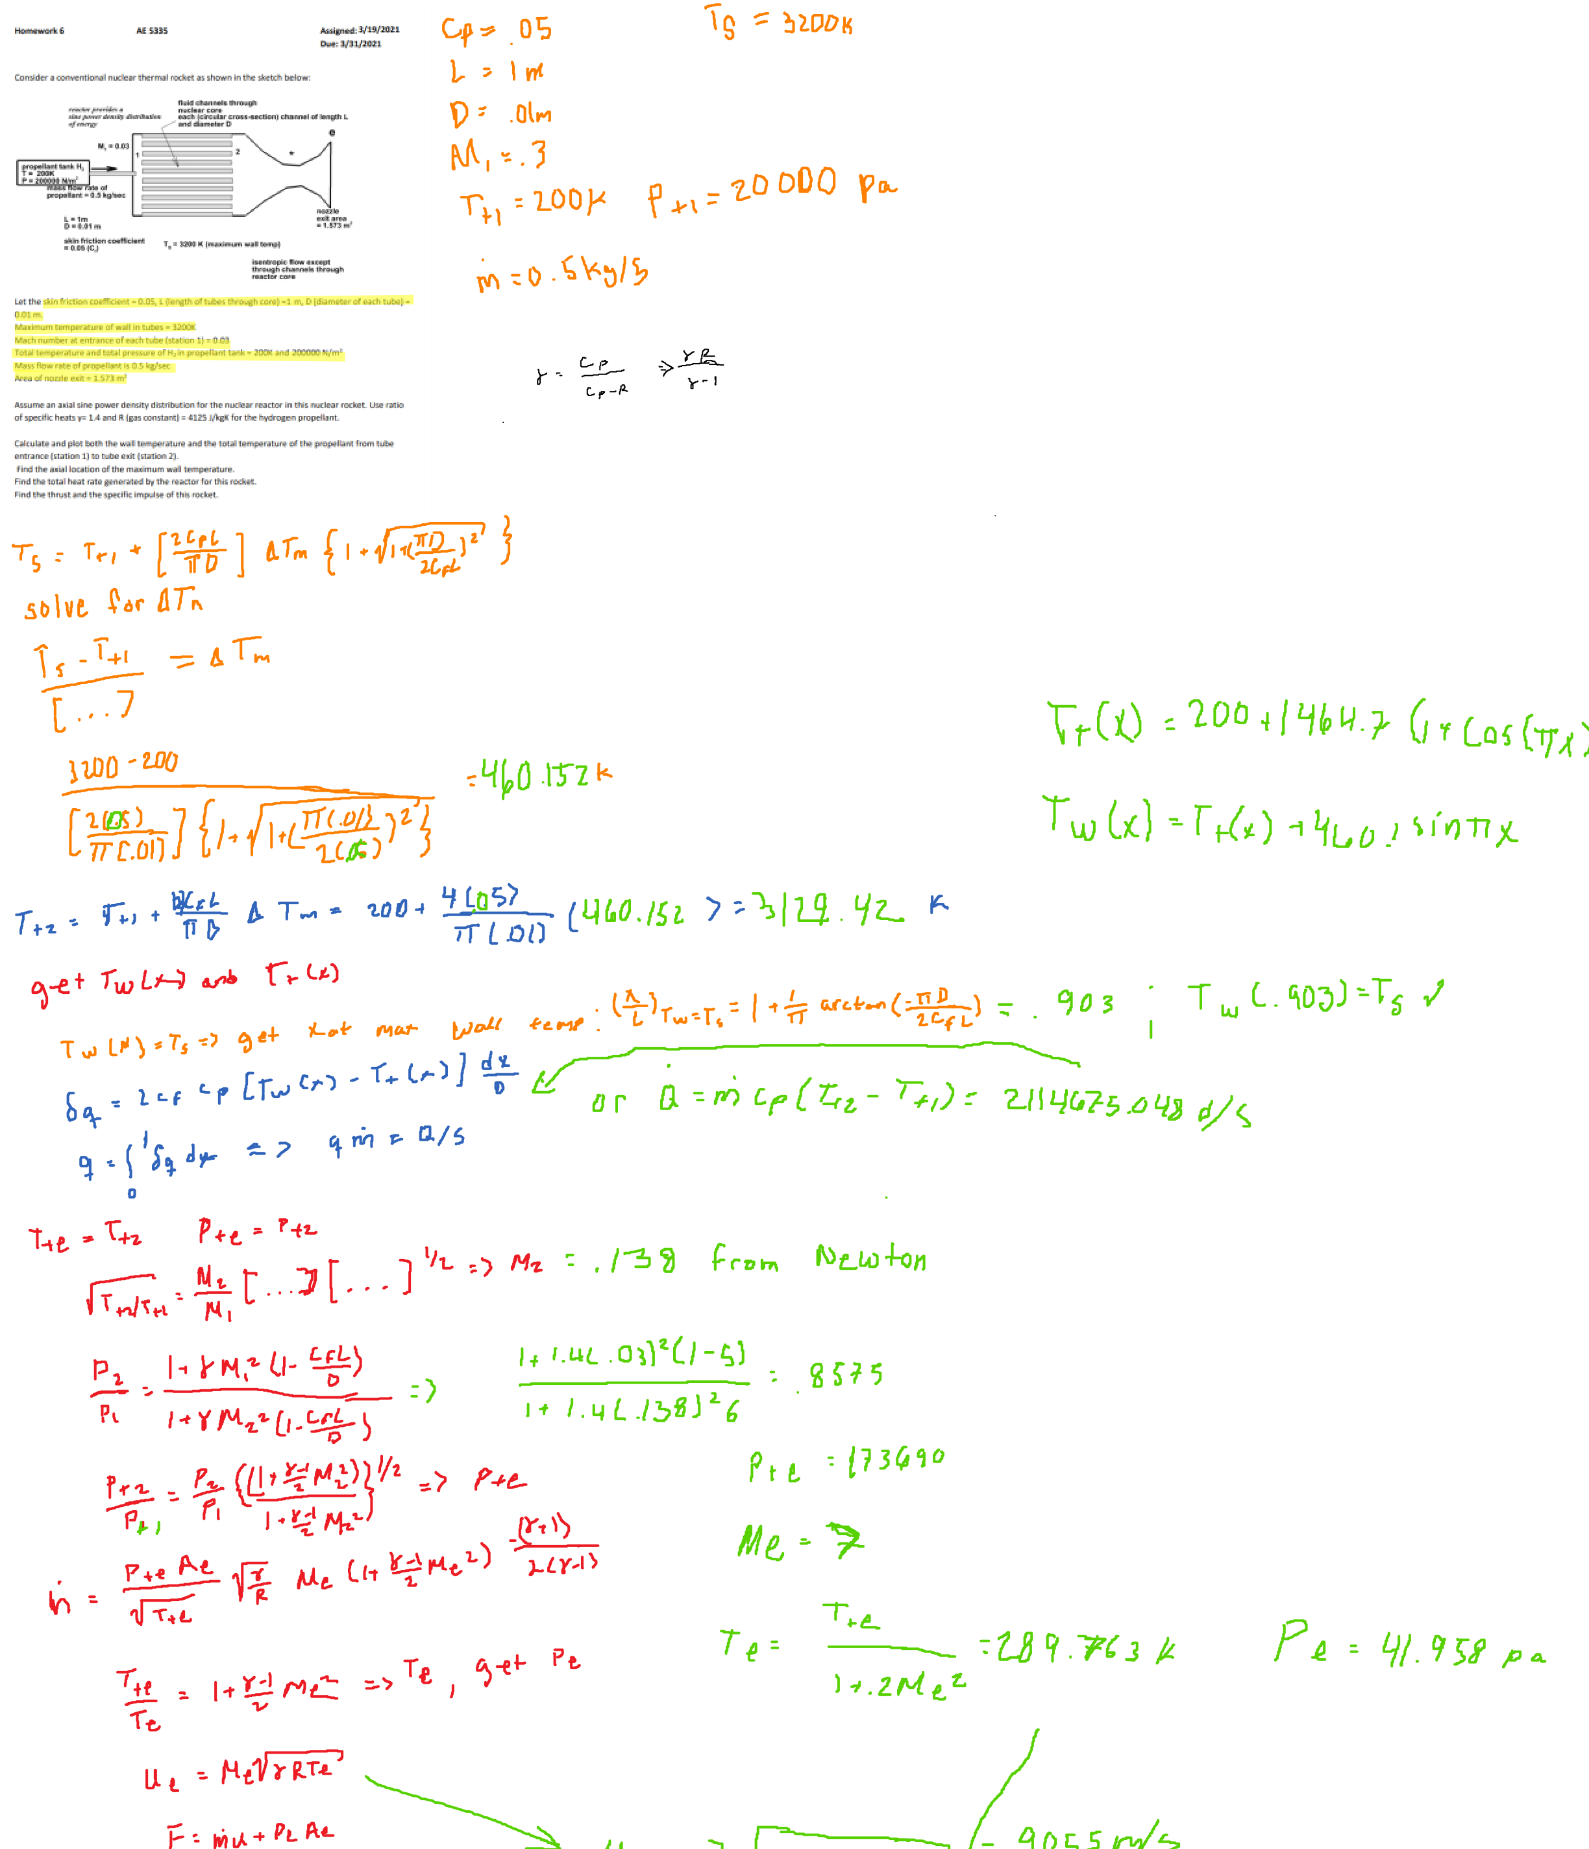 Homework 6 AE 5335 Assigned: 3/19/2021
Due: 3/31/2021
Consider a conventional nuclear thermal rocket as shown in the sketch below:
reactor provides a
sine power density distribution
of energy
fluid channels through
nuclear core
each (circular cross-section) channel of length L
and diameter D
M₁ = 0.03
1
2
*
e
propellant tank H₂
T = 200K
P = 200000 N/m²
mass flow rate of
propellant = 0.5 kg/sec
L = 1m
D = 0.01 m
nozzle
exit area
= 1.573 m²
skin friction coefficient
= 0.05 (Cf)
Ts = 3200 K (maximum wall temp)
isentropic flow except
through channels through
reactor core
Let the skin friction coefficient = 0.05, L (length of tubes through core) =1 m, D (diameter of each tube) =
0.01 m.
Maximum temperature of wall in tubes = 3200K
Mach number at entrance of each tube (station 1) = 0.03
Total temperature and total pressure of H₂ in propellant tank = 200K and 200000 N/m²
Mass flow rate of propellant is 0.5 kg/sec
Area of nozzle exit = 1.573 m²
Assume an axial sine power density distribution for the nuclear reactor in this nuclear rocket. Use ratio
of specific heats γ= 1.4 and R (gas constant) = 4125 J/kgK for the hydrogen propellant.
Calculate and plot both the wall temperature and the total temperature of the propellant from tube
entrance (station 1) to tube exit (station 2).
Find the axial location of the maximum wall temperature.
Find the total heat rate generated by the reactor for this rocket.
Find the thrust and the specific impulse of this rocket.
Cp = .05 Ts = 3200K
L = 1m
D = .01m
M₁ = .3
Tt1 = 200K Pt1 = 20000 pa
ṁ = 0.5 kg/s
γ = Cp/(Cp-R) => γR/(γ-1)
Ts = Tt1 + [2CfL/πD] ΔTm {1+√(1+(πD/2CfL)²)}
solve for ΔTm
(Ts - Tt1)/[...] = ΔTm
(3200-200)/([2(.05)/π(.01)]{1+√(1+(π(.01)/2(.05))²)}) = 460.152 K
Tt(x) = 200+1464.7 (1+cos(πx)
Tw(x) = Tt(x) + 460.1 sinπx
Tt2 = Tt1 + 4CfL/πD ΔTm = 200 + 4(.05)/π(.01) (460.152) = 3129.42 K
get Tw(x) and Tt(x)
Tw(x) = Ts => get x at max wall temp: (x/L)Tw=Ts = 1 + 1/π arctan(-πD/2CfL) = .903 ; Tw(.903) = Ts ✓
δq = 2cf cp [Tw(x) - Tt(x)] dx/D
or Q̇ = ṁ cp (Tt2 - Tt1) = 2114675.048 J/s
q = ∫₀¹ δq dx => qṁ = Q/s
Tte = Tt2 Pte = Pt2
√(Tt2/Tt1) = M2/M1 [...][...]^1/2 => M2 = .138 from Newton
P2/P1 = (1+γM₁²(1-CfL/D))/(1+γM2²(1-CfL/D)) => (1+1.4(.03)²(1-5))/(1+1.4(.138)²6) = .8575
Pt2/Pt1 = P2/P1 {(1+γ-1/2 M2²)/(1+γ-1/2 M2²)}^1/2 => Pte
Pte = 173690
ṁ = Pte Ae/√Tte √(γ/R) Me (1+γ-1/2 Me²)^-(γ+1)/2(γ-1)
Me = 7
Tte/Te = 1+γ-1/2 Me² => Te, get Pe
Te = Tte/(1+.2Me²) = 289.763 K Pe = 41.958 pa
ue = Me√γRTe
F = ṁu + Pe Ae
= 9055 m/s